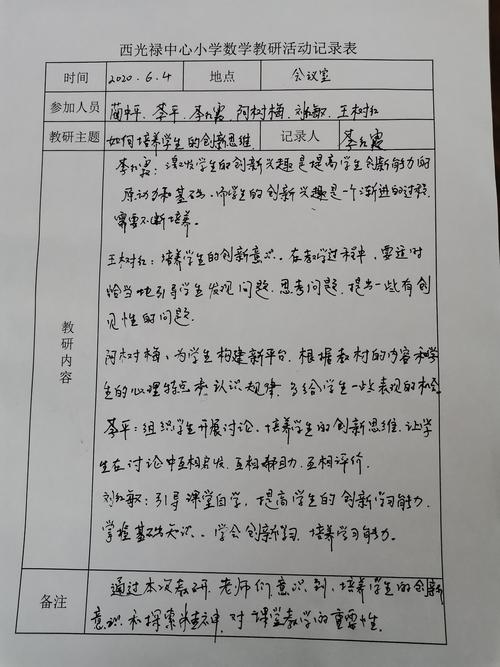 西光禄中心小学数学教研活动记录表
时间 2020.6.4 地点 会议室
参加人员 李平、李红霞、阿树梅、刘红敏、王树红
教研主题 如何培养学生的创新思维 记录人 李红霞
教研内容
李红霞：激发学生的创新兴趣是提高学生创新能力的
原动力和基础，而学生的创新兴趣是一个渐进的过程，
需要不断培养。
王树红：培养学生的创新意识。在教学过程中，要适时
恰当地引导学生发现问题、思考问题、提出一些有创
见性的问题。
阿树梅：为学生构建新平台。根据教材的内容和学
生的心理特点和认识规律，多给学生一些表现的机会
李平：组织学生开展讨论、培养学生的创新思维，让学
生在讨论中互相启发、互相帮助、互相评价。
刘红敏：引导课堂自学，提高学生的创新学习能力，
掌握基础知识。学会创新学习，培养学习能力。
备注
通过本次教研，老师们意识到，培养学生的创新
意识和探索精神，对课堂教学的重要性。